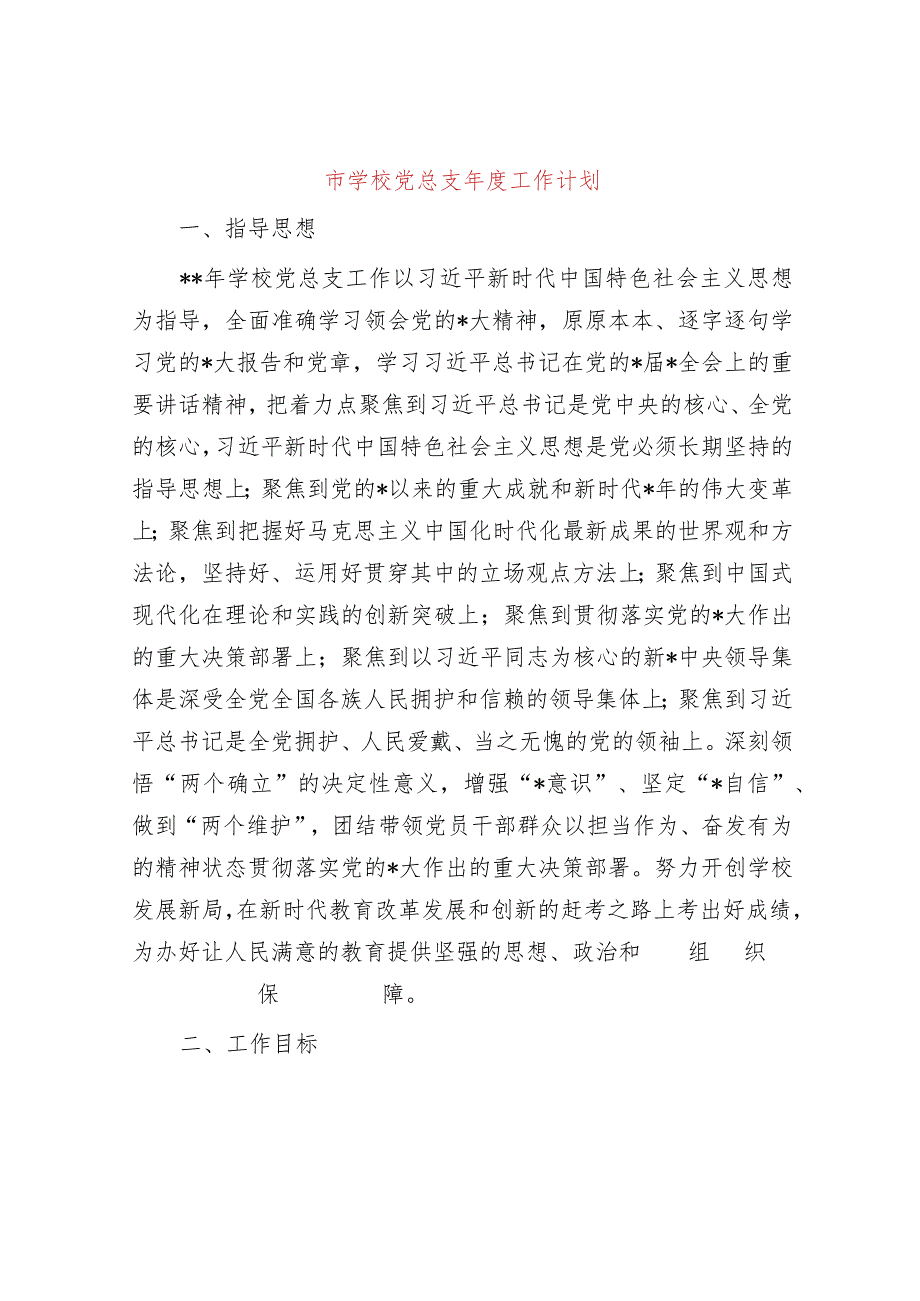 市学校党总支年度工作计划
一、指导思想
**年学校党总支工作以习近平新时代中国特色社会主义思想
为指导，全面准确学习领会党的*大精神，原原本本、逐字逐句学
习党的*大报告和党章，学习习近平总书记在党的*届*全会上的重
要讲话精神，把着力点聚焦到习近平总书记是党中央的核心、全党
的核心，习近平新时代中国特色社会主义思想是党必须长期坚持的
指导思想上；聚焦到党的*以来的重大成就和新时代*年的伟大变革
上；聚焦到把握好马克思主义中国化时代化最新成果的世界观和方
法论，坚持好、运用好贯穿其中的立场观点方法上；聚焦到中国式
现代化在理论和实践的创新突破上；聚焦到贯彻落实党的*大作出
的重大决策部署上；聚焦到以习近平同志为核心的新*中央领导集
体是深受全党全国各族人民拥护和信赖的领导集体上；聚焦到习近
平总书记是全党拥护、人民爱戴、当之无愧的党的领袖上。深刻领
悟“两个确立”的决定性意义，增强“*意识”、坚定“*自信”、
做到“两个维护”，团结带领党员干部群众以担当作为、奋发有为
的精神状态贯彻落实党的*大作出的重大决策部署。努力开创学校
发展新局，在新时代教育改革发展和创新的赶考之路上考出好成绩，
为办好让人民满意的教育提供坚强的思想、政治和 组 织
保 障。
二、工作目标